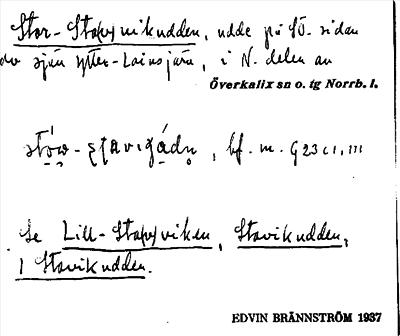 Stor-Stavviksudden, udde på SÖ. sidan
av sjön Ytter-Lainsjärv, i N. delen av
Överkalix sn o. tg Norrb. l.
bf. m. G 23 c 1, III
Se Lill-Stavviken, Stavikudden,
1 Stavikudden.
EDVIN BRÄNNSTRÖM 1937